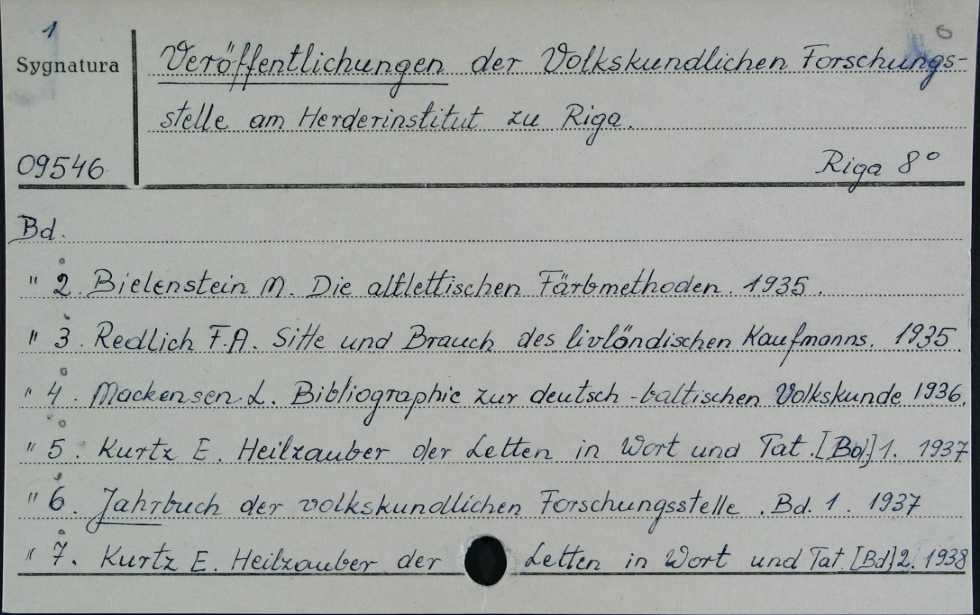 1
6
Sygnatura
Veröffentlichungen der Volkskundlichen Forschungs-
stelle am Herderinstitut zu Riga.
09546
Riga 8°
Bd.
" 2. Bielenstein M. Die altlettischen Färbmethoden. 1935.
" 3. Redlich F.A. Sitte und Brauch des livländischen Kaufmanns. 1935.
" 4. Mackensen L. Bibliographie zur deutsch-baltischen Volkskunde 1936.
" 5. Kurtz E. Heilzauber der Letten in Wort und Tat. [Bd.] 1. 1937
" 6. Jahrbuch der volkskundlichen Forschungsstelle. Bd. 1. 1937
" 7. Kurtz E. Heilzauber der Letten in Wort und Tat. [Bd] 2. 1938